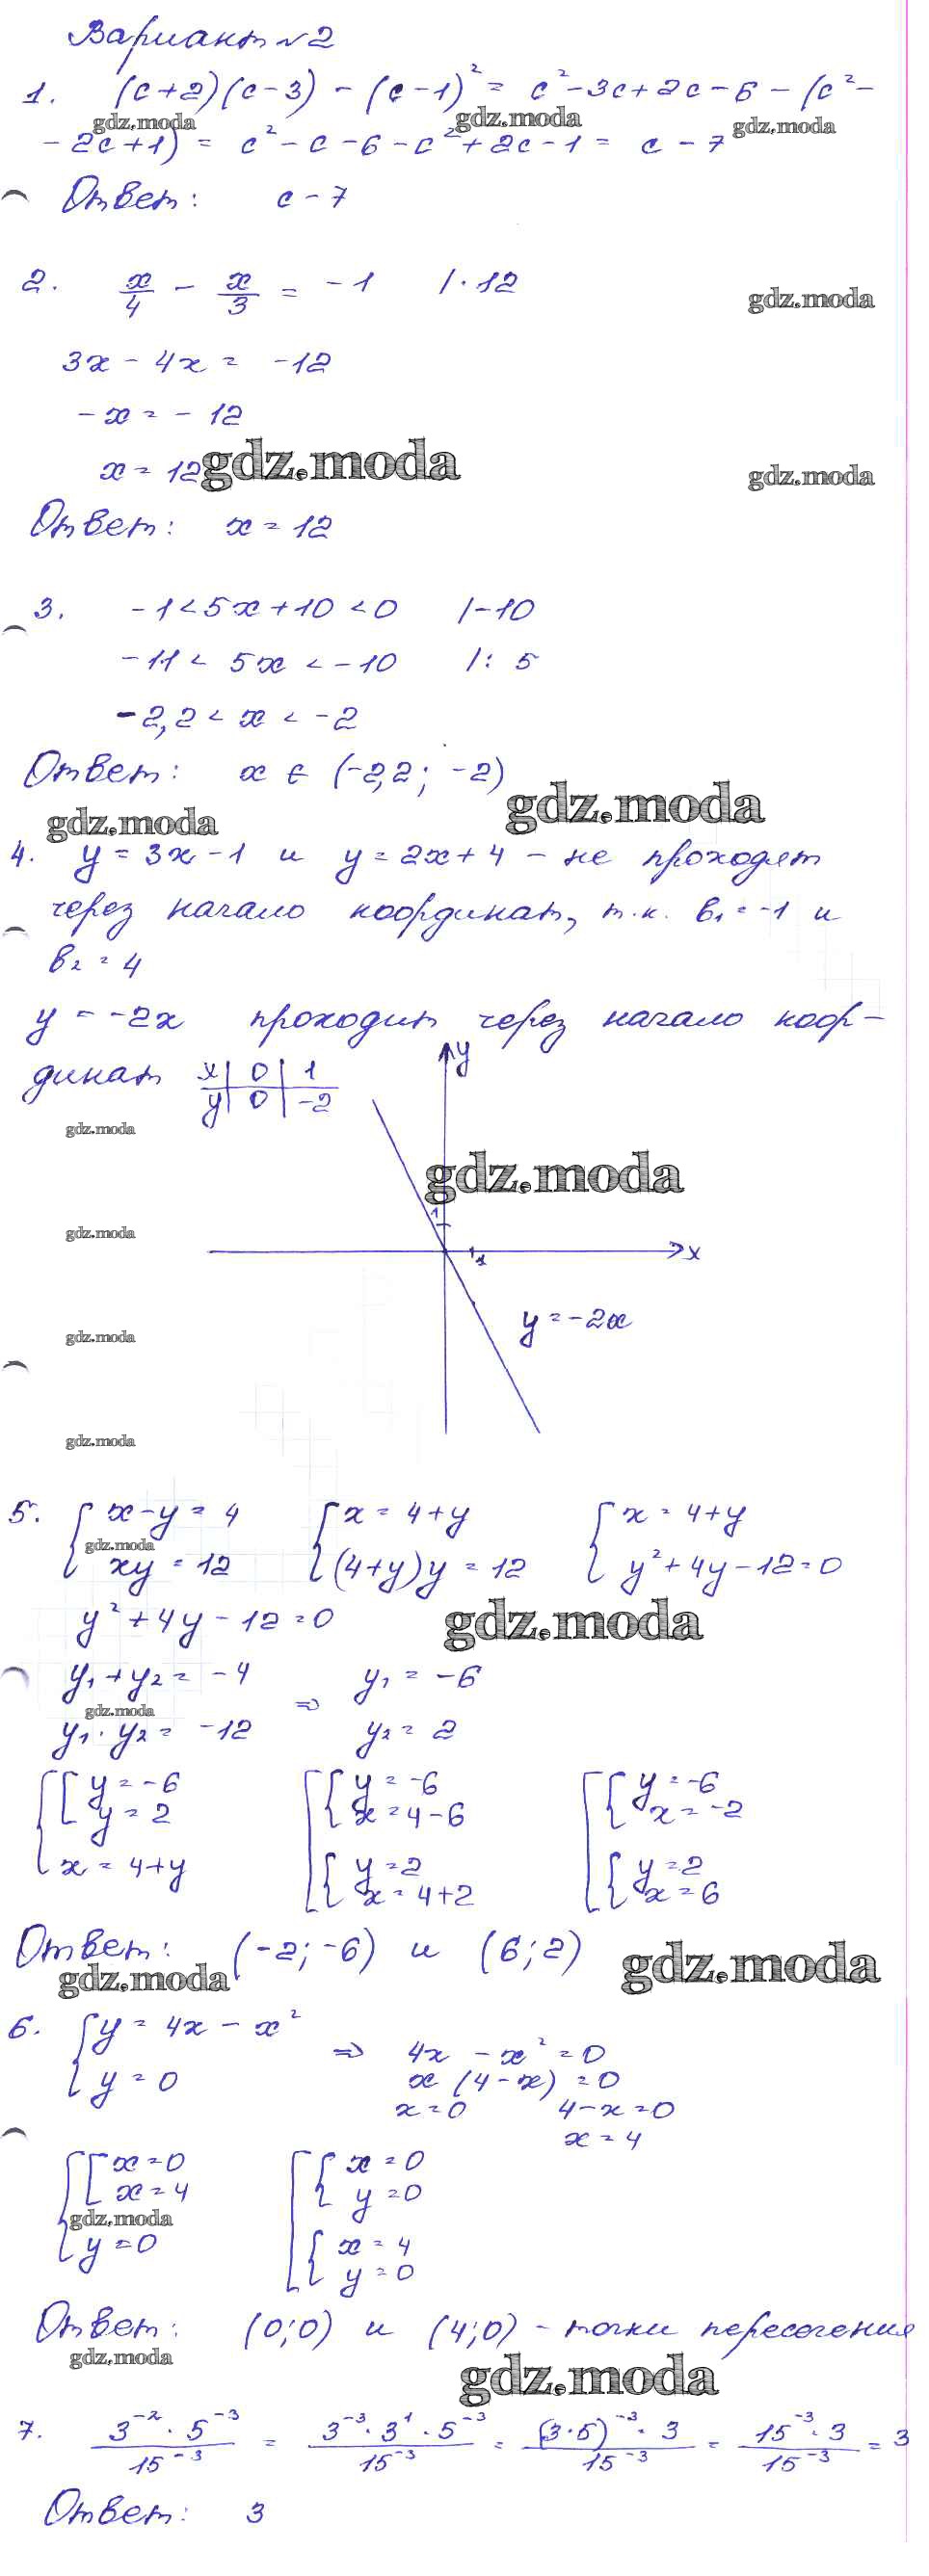 Вариант №2
1. (c+2)(c-3) - (c-1)² = c² - 3c + 2c - 6 - (c² -
gdz.moda gdz.moda gdz.moda
- 2c + 1) = c² - c - 6 - c² + 2c - 1 = c - 7
Ответ: c - 7
2. x/4 - x/3 = -1 |·12
gdz.moda
3x - 4x = -12
-x = -12
x = 12
gdz.moda gdz.moda
Ответ: x = 12
3. -1 < 5x + 10 < 0 |-10
-11 < 5x < -10 |: 5
-2,2 < x < -2
Ответ: x ∈ (-2,2; -2)
gdz.moda gdz.moda
4. y = 3x - 1 и y = 2x + 4 - не проходят
через начало координат, т.к. b₁ = -1 и
b₂ = 4
y = -2x проходит через начало коор-
динат x | 0 | 1
y | 0 | -2
y
gdz.moda
gdz.moda
1
gdz.moda
x
1
y = -2x
gdz.moda
gdz.moda
5. { x - y = 4 { x = 4 + y { x = 4 + y
gdz.moda
xy = 12 (4 + y)y = 12 y² + 4y - 12 = 0
y² + 4y - 12 = 0
gdz.moda
y₁ + y₂ = -4 ⇒ y₁ = -6
gdz.moda
y₁ · y₂ = -12 y₂ = 2
{ [ y = -6 [ { y = -6 [ { y = -6
y = 2 x = 4 - 6 x = -2
x = 4 + y { y = 2 { y = 2
x = 4 + 2 x = 6
Ответ: (-2; -6) и (6; 2)
gdz.moda gdz.moda
6. { y = 4x - x² ⇒ 4x - x² = 0
y = 0 x (4 - x) = 0
x = 0 4 - x = 0
x = 4
{ [ x = 0 [ { x = 0
x = 4 y = 0
gdz.moda
y = 0 { x = 4
y = 0
Ответ: (0; 0) и (4; 0) - точки пересечения
gdz.moda gdz.moda
7. 3⁻² · 5⁻³ / 15⁻³ = 3⁻³ · 3¹ · 5⁻³ / 15⁻³ = (3·5)⁻³ · 3 / 15⁻³ = 15⁻³ · 3 / 15⁻³ = 3
Ответ: 3